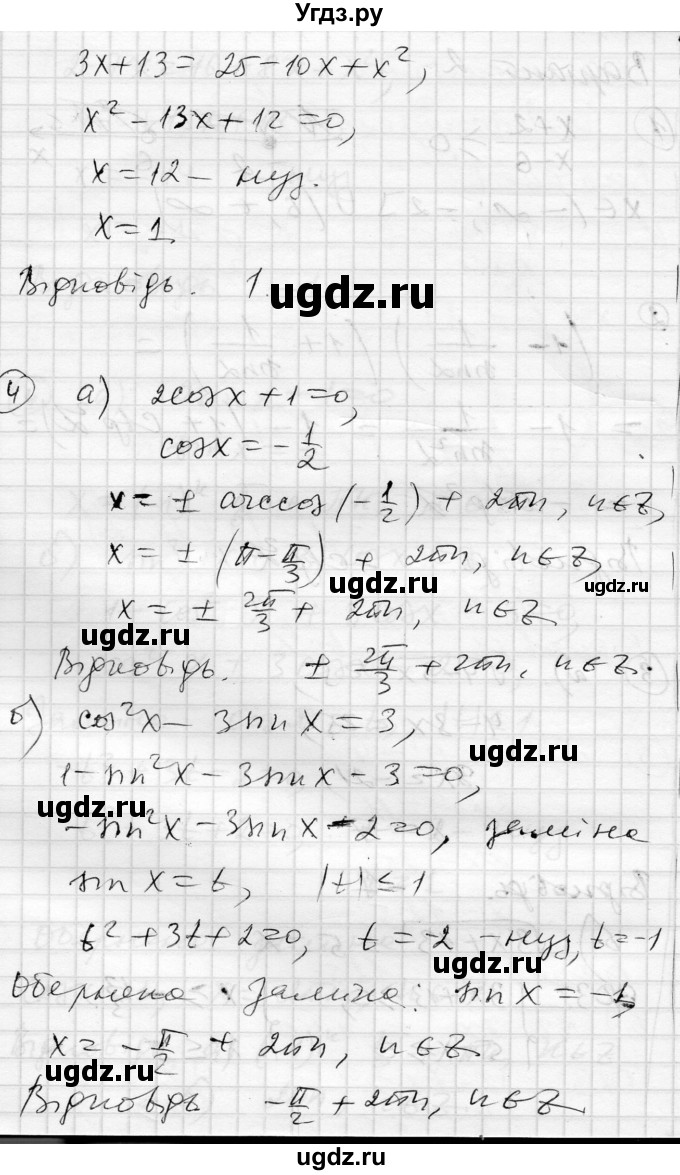 Угдз.ру
3x+13 = 25-10x+x²,
x²-13x+12=0,
x=12 - нуз.
x=1.
Відповідь. 1.
ugdz.ru
4 а) 2cosx+1=0,
cosx=-1/2
x = ± arccos(-1/2) + 2πn, n∈Z,
x = ± (π-π/3) + 2πn, n∈Z,
ugdz.ru
ugdz.ru
x = ± 2π/3 + 2πn, n∈Z.
ugdz.ru
Відповідь. ± 2π/3 + 2πn, n∈Z.
б) cos²x - 3sinx = 3,
ugdz.ru
1-sin²x-3sinx-3=0,
ugdz.ru
-sin²x-3sinx-2=0, заміна
sinx=t, |t|≤1
t²+3t+2=0, t=-2 - нуз, t=-1
ugdz.ru
Обернена заміна: sinx=-1,
x=-π/2 + 2πn, n∈Z.
ugdz.ru
Відповідь -π/2 + 2πn, n∈Z.
ugdz.ru